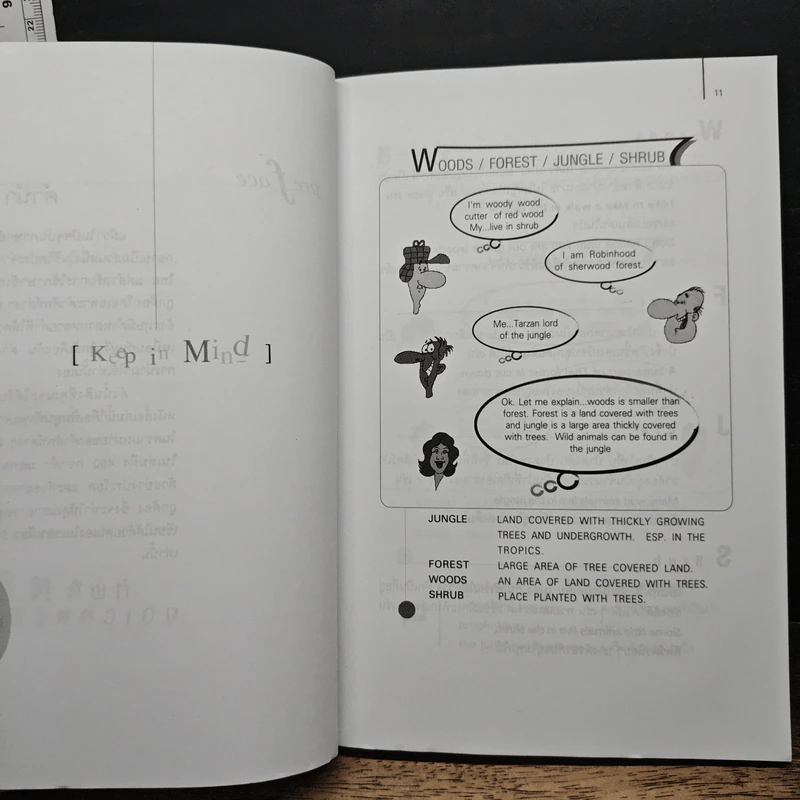 [ Keep in Mind ]
11
WOODS / FOREST / JUNGLE / SHRUB
I'm woody wood
cutter of red wood
My...live in shrub
I am Robinhood
of sherwood forest.
Me...Tarzan lord
of the jungle
Ok. Let me explain...woods is smaller than
forest. Forest is a land covered with trees
and jungle is a large area thickly covered
with trees. Wild animals can be found in
the jungle
JUNGLE LAND COVERED WITH THICKLY GROWING
TREES AND UNDERGROWTH. ESP. IN THE
TROPICS.
FOREST LARGE AREA OF TREE COVERED LAND.
WOODS AN AREA OF LAND COVERED WITH TREES.
SHRUB PLACE PLANTED WITH TREES.